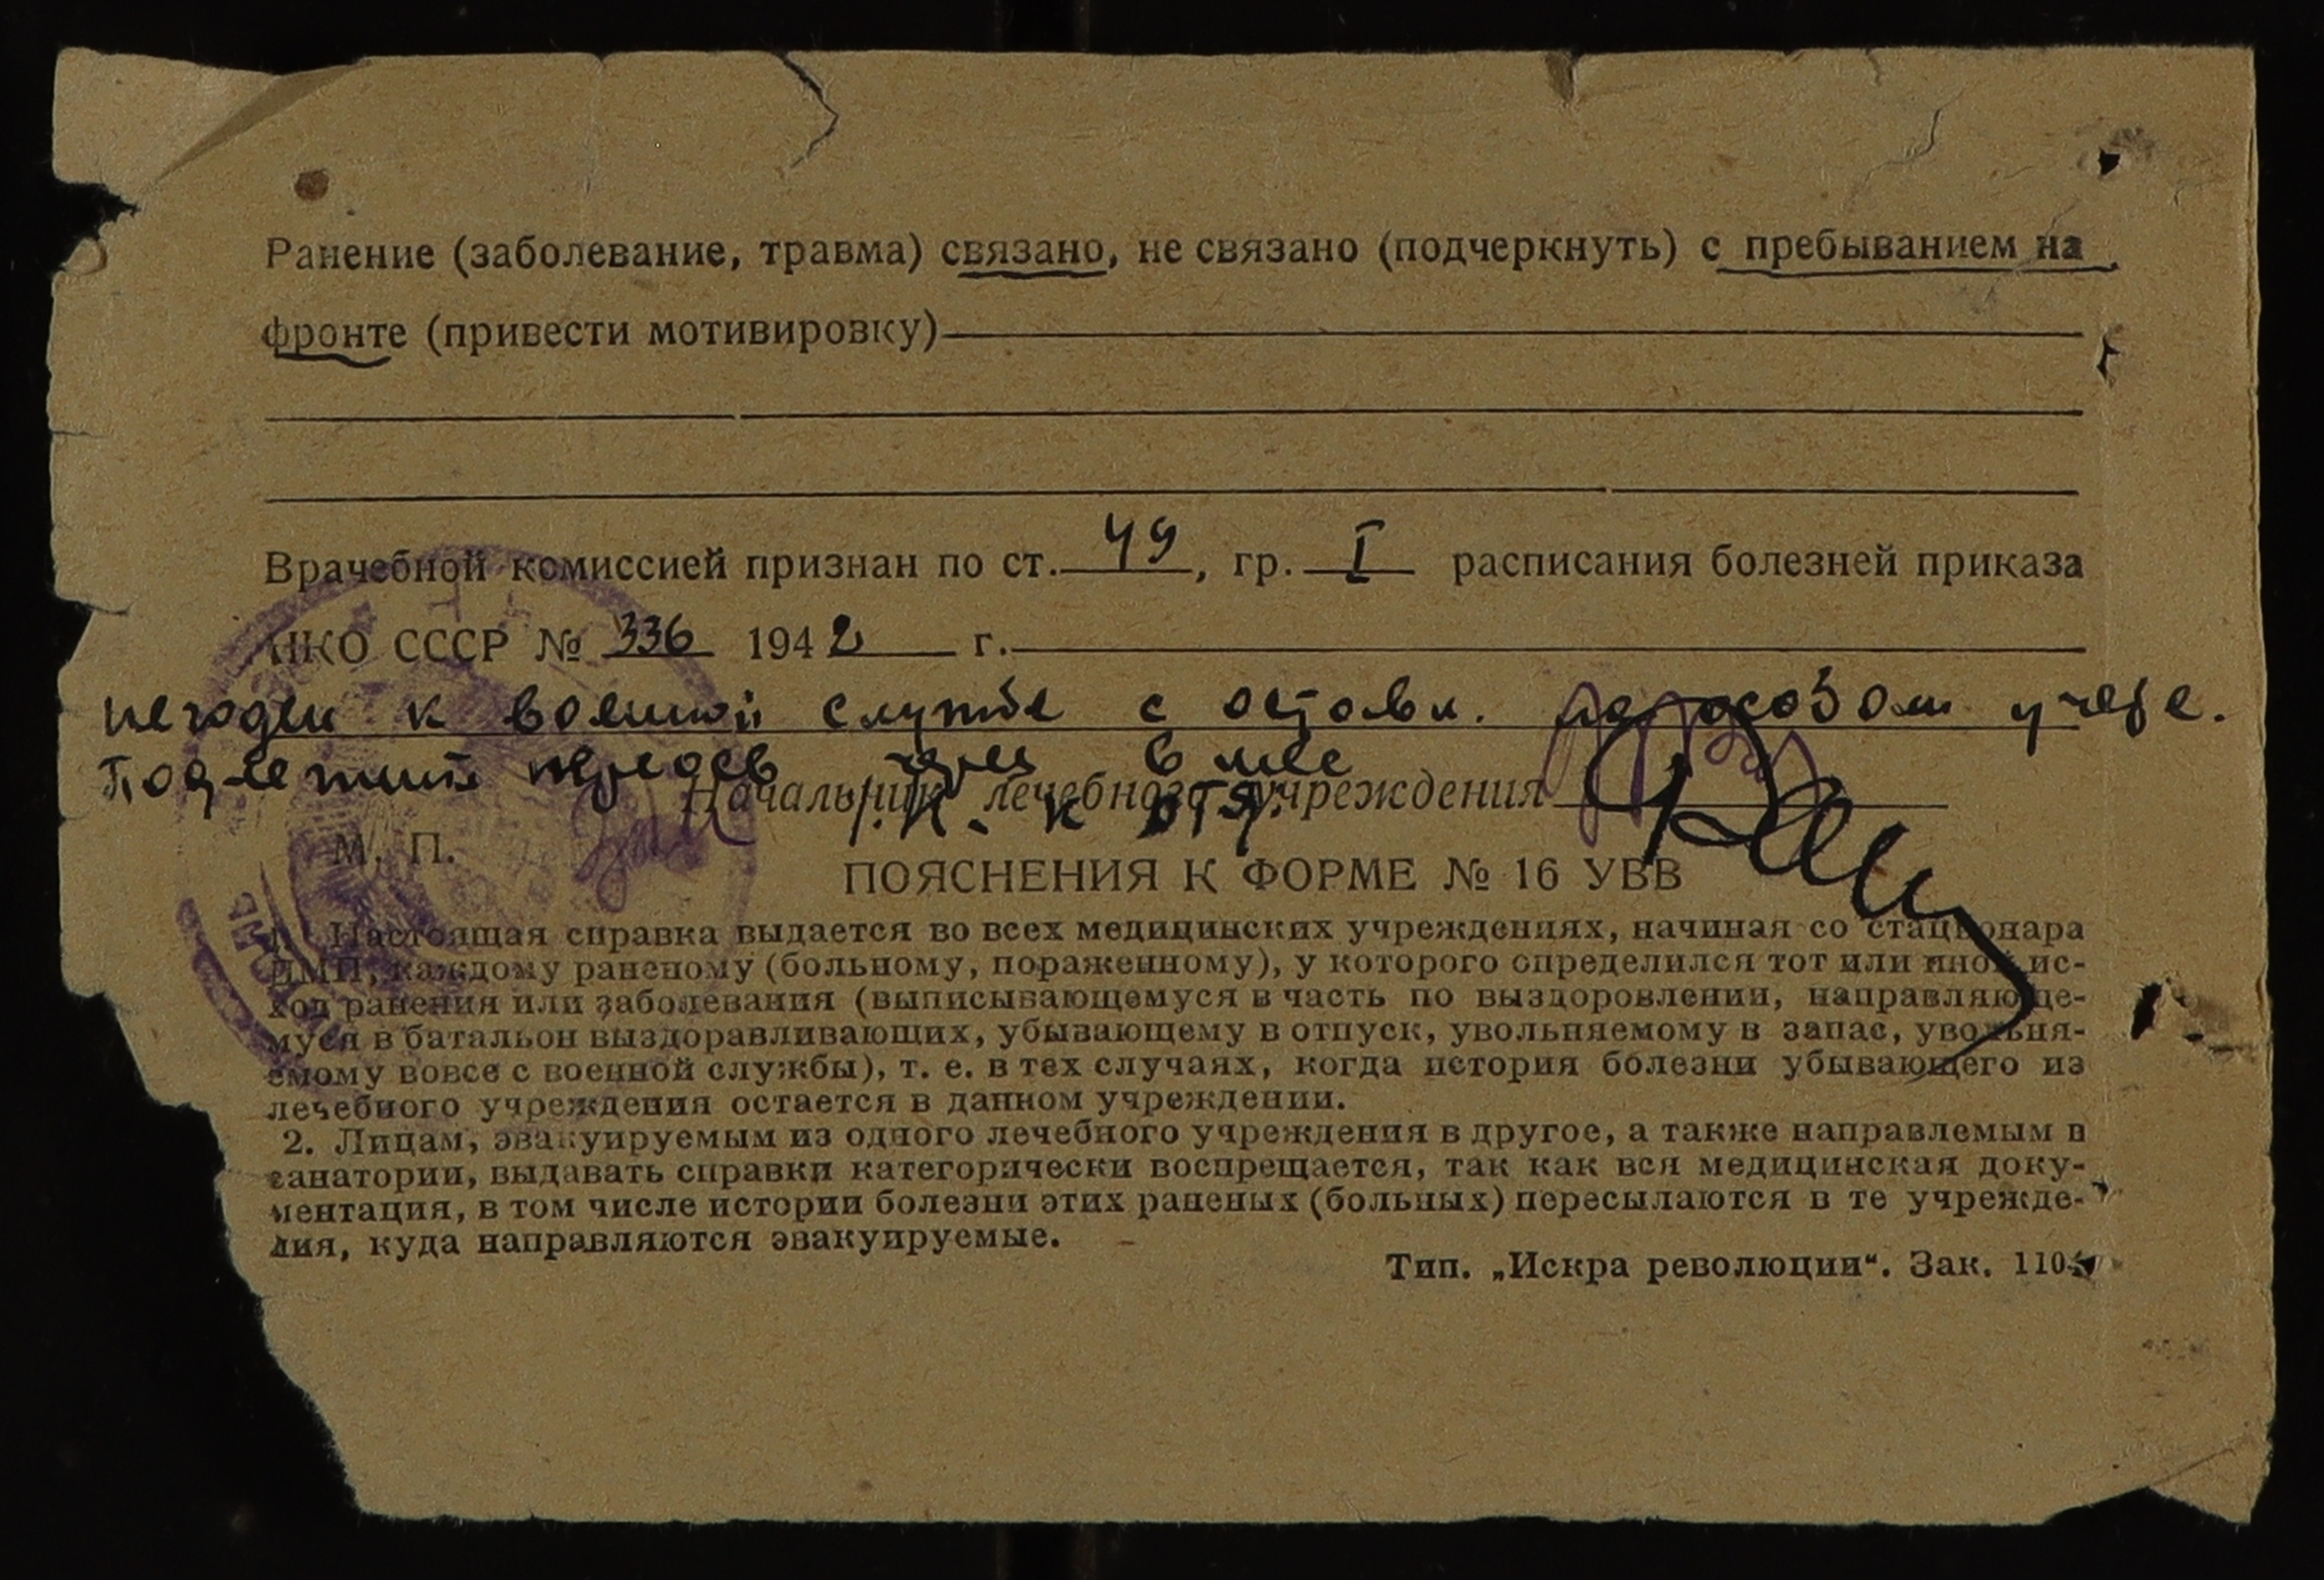 Ранение (заболевание, травма) связано, не связано (подчеркнуть) с пребыванием на
фронте (привести мотивировку)
Врачебной комиссией признан по ст. 49, гр. I расписания болезней приказа
НКО СССР № 336 1942 г.
негоден к военной службе с оставл. на особом учете.
Подлежит переосв через 6 мес
Начальник лечебного учреждения
М. П.
ПОЯСНЕНИЯ К ФОРМЕ № 16 УВВ
1. Настоящая справка выдается во всех медицинских учреждениях, начиная со стационара
ПМП, каждому раненому (больному, пораженному), у которого определился тот или иной ис-
ход ранения или заболевания (выписывающемуся в часть по выздоровлении, направляюще-
муся в батальон выздоравливающих, убывающему в отпуск, увольняемому в запас, увольня-
емому вовсе с военной службы), т. е. в тех случаях, когда история болезни убывающего из
лечебного учреждения остается в данном учреждении.
2. Лицам, эвакуируемым из одного лечебного учреждения в другое, а также направлемым в
санатории, выдавать справки категорически воспрещается, так как вся медицинская доку-
ментация, в том числе истории болезни этих раненых (больных) пересылаются в те учрежде-
ния, куда направляются эвакуируемые.
Тип. „Искра революции“. Зак. 110